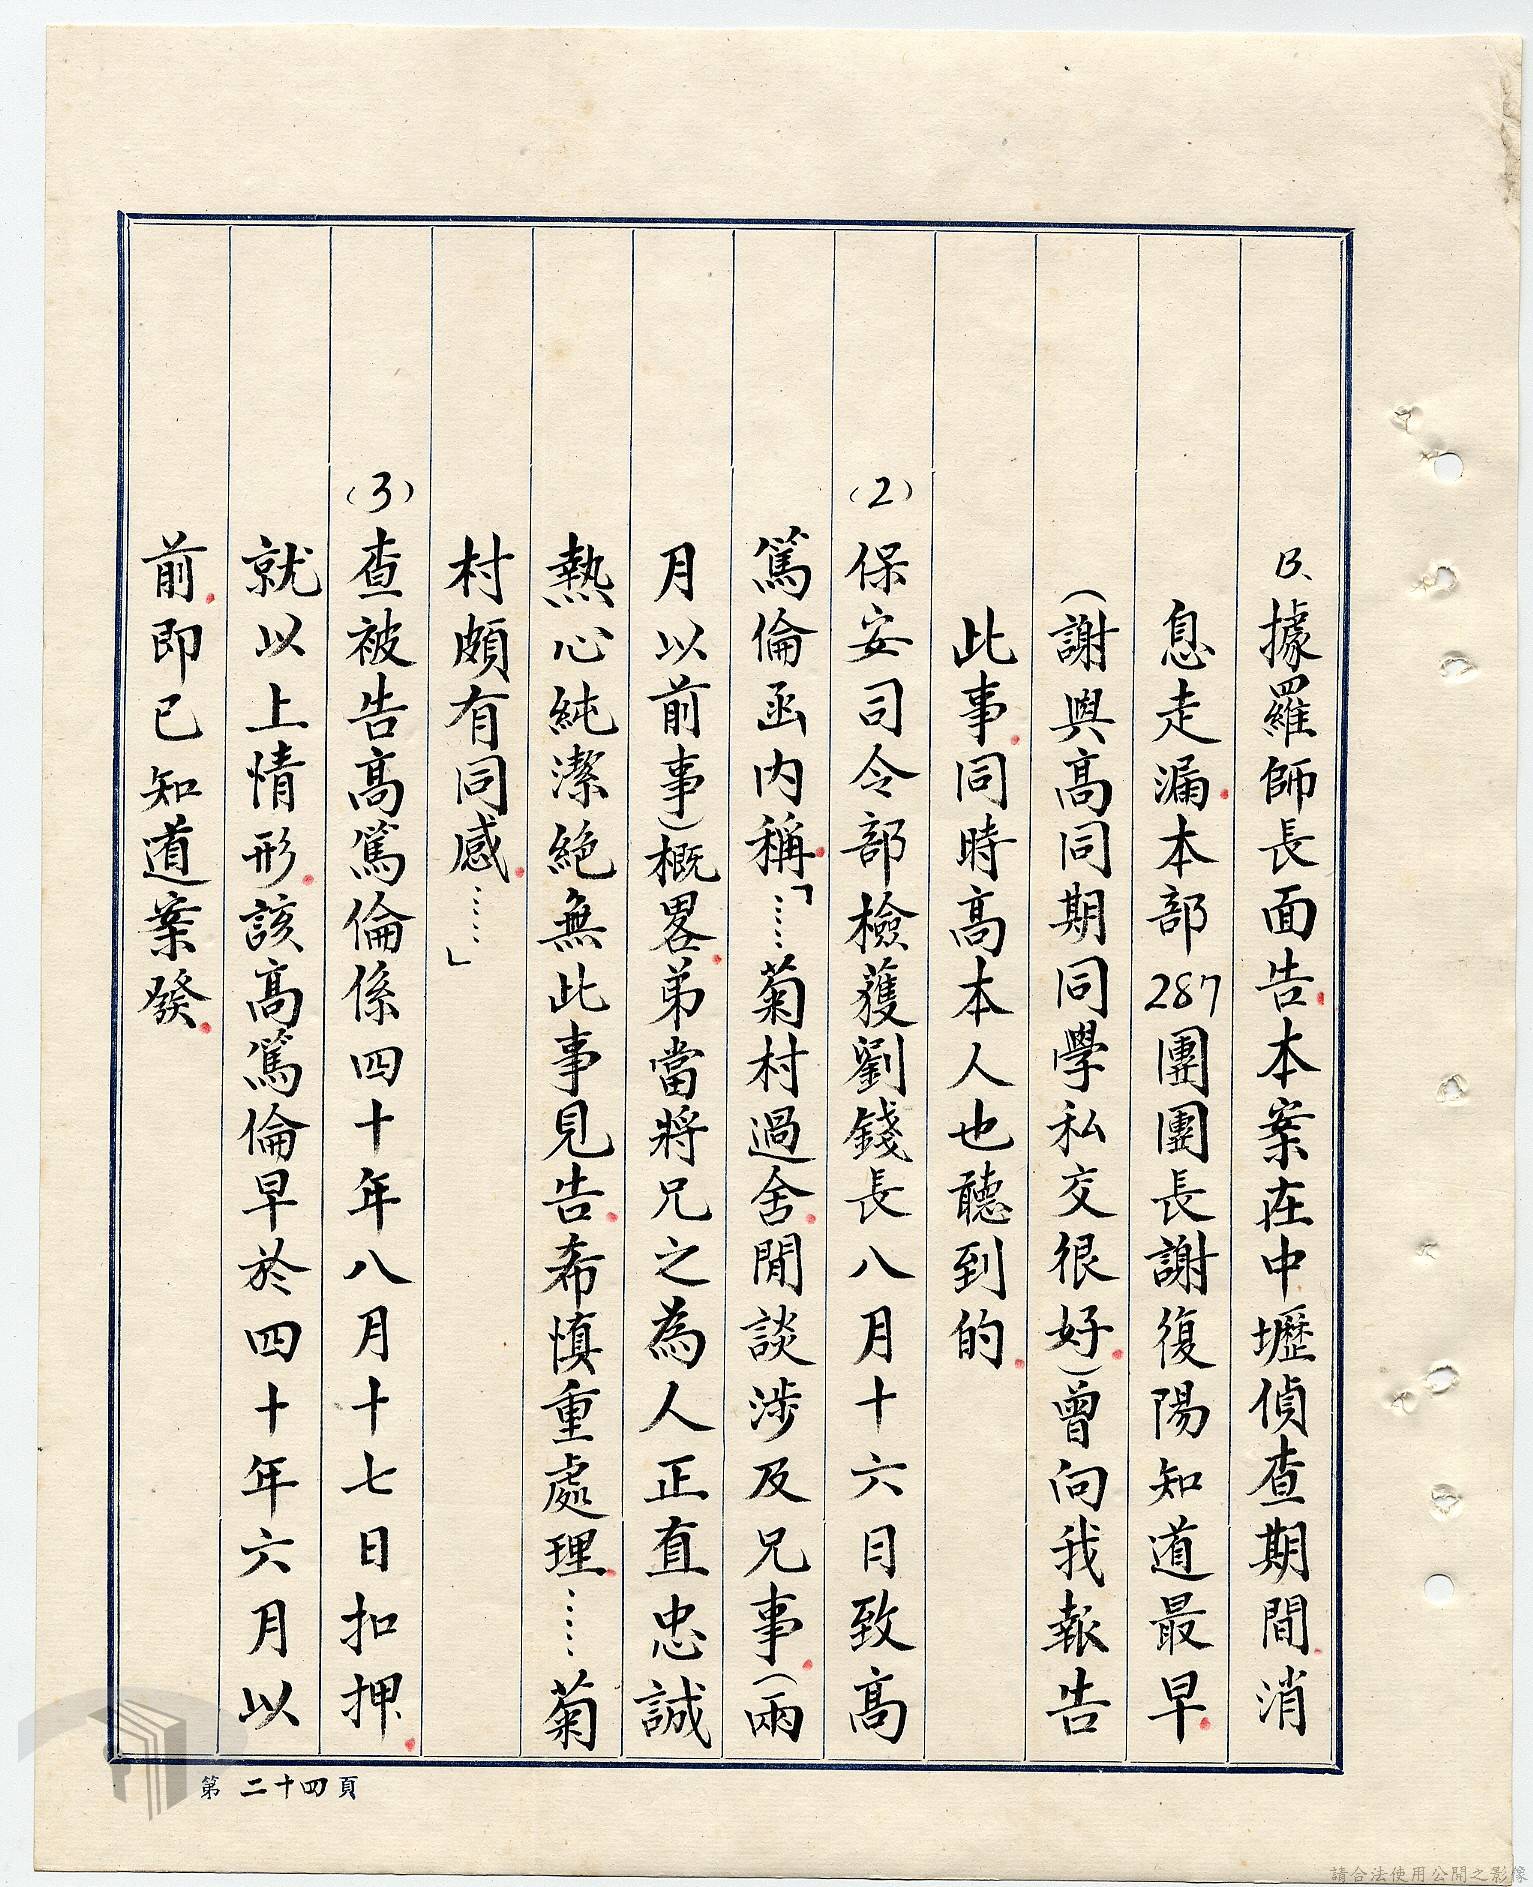 B、據羅師長面告.本案在中壢偵查期間.消
息走漏.本部287團團長謝復陽知道最早.
(謝與高同期同學私交很好.)曾向我報告
此事.同時高本人也聽到的.
(2)保安司令部檢獲劉錢長八月十六日致高
篤倫函內稱.「……菊村過舍.閒談涉及兄事.(兩
月以前事)概畧.弟當將兄之為人正直忠誠
熱心純潔絕無此事見告.希慎重處理.……菊
村頗有同感.……」
(3)查被告高篤倫係四十年八月十七日扣押.
就以上情形.該高篤倫早於四十年六月以
前.即已知道案發.
第二十四頁
請合法使用公開之影像